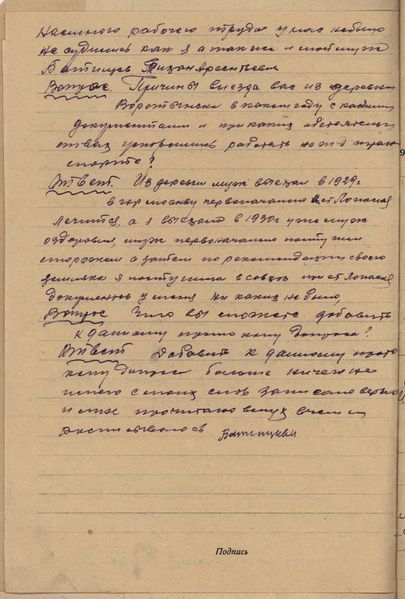 Наемного рабочего труда у нас не было
не судились как я а также и мой муж
Батищев Тихон Арсентьевич
Вопрос. Причины выезда вас из деревни
в каком году с какими
документами и при каких обстоятель
ствах устроились работать на ж.д. транс
порте?
Ответ. Из деревни муж выехал в 1929г.
в гор. Москву первоначально
лечится, а я выехала в 1930г. уже муж
оздоровел, муж первоначально поступил
сторожем а затем по рекомендации своего
я поступила в совхоз при ст.
документов у меня ни каких не было.
Вопрос Что вы сможете добавить
к данному протоколу допроса?
Ответ Добавить к данному прото
колу допроса больше ничего не
с моих слов записано верно
и мне прочитано вслух в чем и
расписываюсь
Подпись